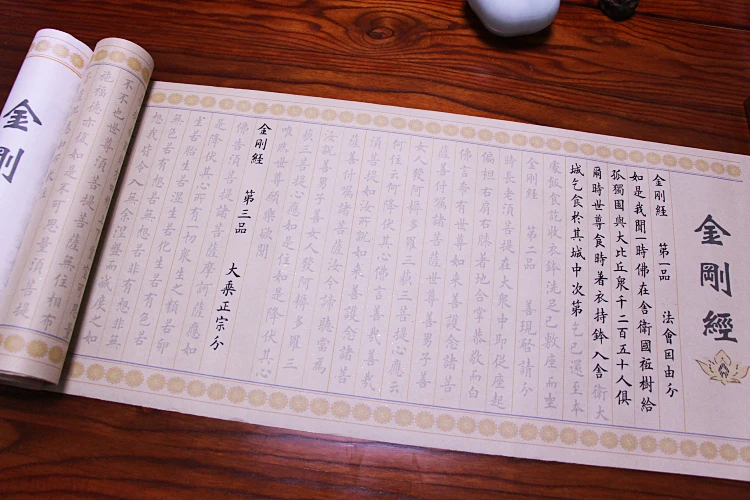 金剛經
金剛經 第一品 法會因由分
如是我聞一時佛在舍衛國祗樹給
孤獨園與大比丘衆千二百五十人俱
爾時世尊食時著衣持鉢入舍衛大
城乞食於其城中次第乞已還至本
處飯食訖收衣鉢洗足已敷座而坐
金剛經 第二品 善現啟請分
時長老須菩提在大衆中即從座起
偏袒右肩右膝著地合掌恭敬而白
佛言希有世尊如來善護念諸菩
薩善付囑諸菩薩世尊善男子善
女人發阿耨多羅三藐三菩提心應云
何住云何降伏其心佛言善哉善哉
須菩提如汝所說如來善護念諸菩
薩善付囑諸菩薩汝今諦聽當為
汝說善男子善女人發阿耨多羅三
藐三菩提心應如是住如是降伏其心
唯然世尊願樂欲聞
金剛經 第三品 大乘正宗分
佛告須菩提諸菩薩摩訶薩應如
是降伏其心所有一切衆生之類若卵
生若胎生若濕生若化生若有色若
無色若有想若無想若非有想非無
想我皆令入無餘涅槃而滅度之如
不不也世尊須菩提菩薩無住相布
施福德亦復如是不可思量須菩提
金剛